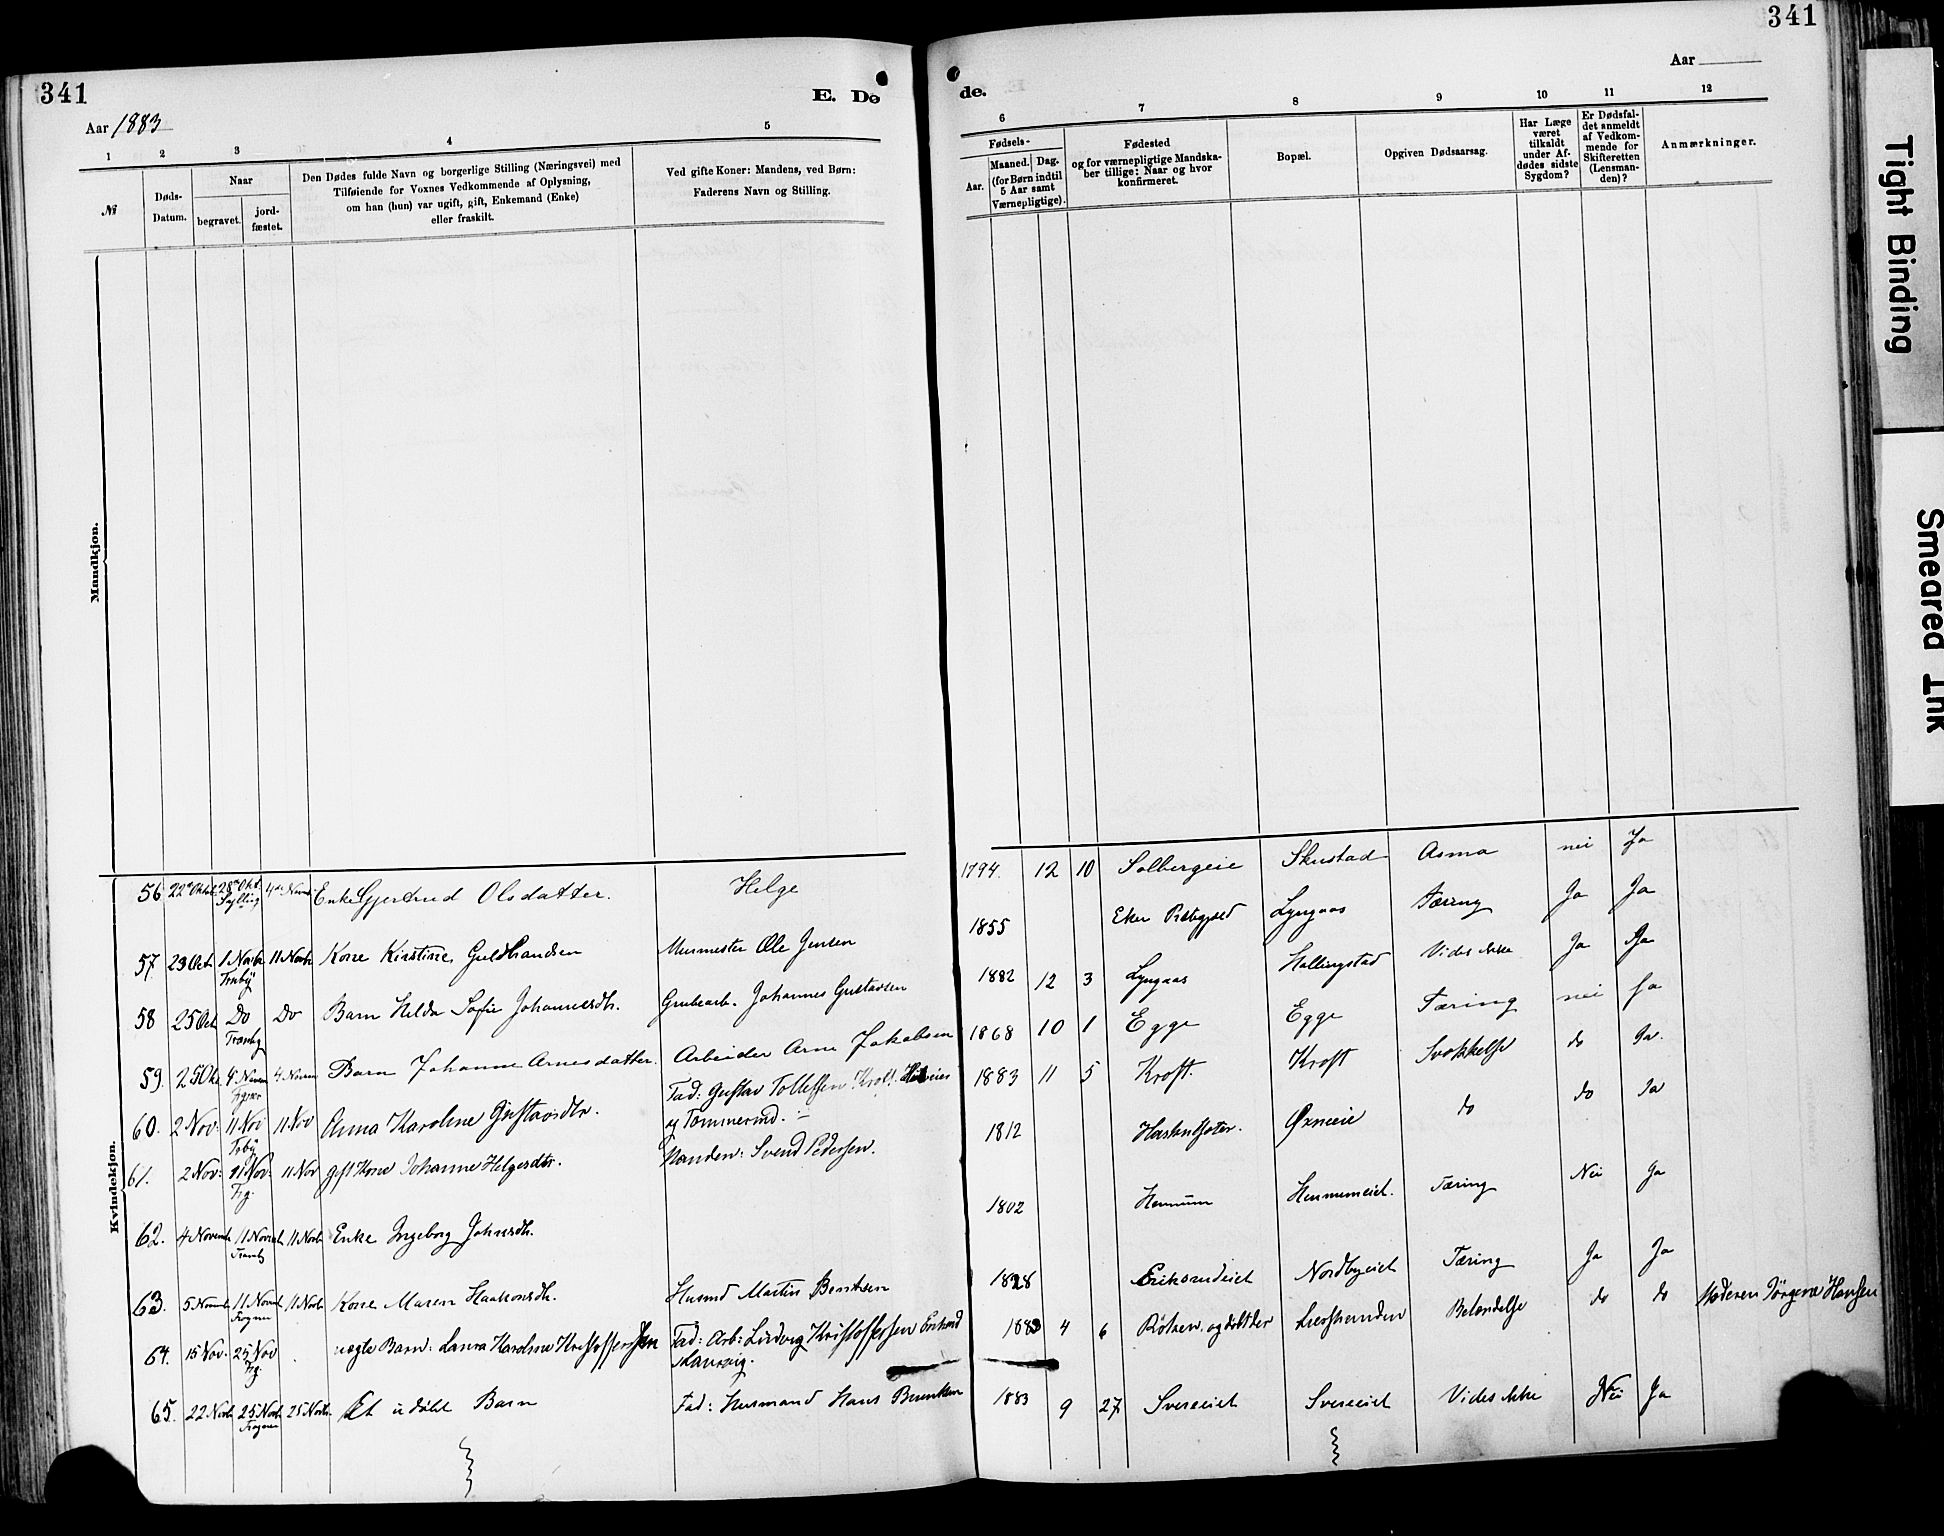 341
E. Dø
Aar 1883
1 2 3 4 5
№
Døds-
Datum.
Naar
begravet.
jord-
fæstet.
Den Dødes fulde Navn og borgerlige Stilling (Næringsvei) med
Tilføiende for Voxnes Vedkommende af Oplysning,
om han (hun) var ugift, gift, Enkemand (Enke)
eller fraskilt.
Ved gifte Koner: Mandens, ved Børn:
Faderens Navn og Stilling.
Mandkjøn.
Kvindekjøn.
56 22de Oktob. 28de Okt. 4de Novmb Enke Gjertrud Olsdatter. Helge
Sylling
57. 23 Oct. 1 Novbr 11 Novbr Kone Kirstine Guldbrandsen Murmester Ole Jensen
Tranby
58 25 Oct Do Do Barn Hilda Sofie Johannesdtr. Grubearb. Johannes Gustavsen
Tranby
59. 25 Okt 4 Novem 4 Novem Barn Johanne Arnesdatter. Arbeider Arne Jakobsen
60. 2 Nov. 11 Nov 11 Nov Anna Karoline Gustavsdtr. Fad: Gustav Tollefsen Kroft.
Trby
og Tømmermd.
61. 2 Nov: 11 Nov: 11 Nov gift Kone Johanne Helgesdtr. Manden: Svend Pedersen.
62. 4 Novemb 11 Novmb 11 Novb Enke Ingeborg Johnsdtr.
Tranb
63. 5 Novmb 11 Novmb 11 Novb Kone Maren Haakonsdtr. Husmd Martin Bentsen
Frogner
64. 15 Nov. 25 Nov uægte Barn: Laura Karoline Kristoffersen Fad: Arb: Ludvig Kristoffersen
Frg
65. 22 Novb 25 Novb 25 Novbr. Et udøbt Barn Fad: Husmand Hans
Frogner
341
de.
Aar
6 7 8 9 10 11 12
Fødsels-
Aar.
Maaned. Dag.
(for Børn indtil
5 Aar samt
Værnepligtige).
Fødested
og for værnepligtige Mandska-
ber tillige: Naar og hvor
konfirmeret.
Bopæl.
Opgiven Dødsaarsag.
Har Læge
været
tilkaldt
under Af-
dødes sidste
Sygdom?
Er Dødsfal-
det anmeldt
af Vedkom-
mende for
Skifteretten
(Lensman-
den)?
Anmærkninger.
1794. 12 10 Solbergeie Skustad Asma nei Ja
1855 Eker Præstegjeld Lyngaas Tæring Ja Ja
1882 12 3 Lyngaas Hallingstad Vides ikke Ja Ja
1868 10 1 Egge Egge Tæring nei Ja
1883 11 5 Kroft. Kroft Svækkelse do Ja.
1812 Ørneeie do do Ja
1802 Hennum Hennumeiet. Tæring Nei Ja
1828 Eriksrudeiet Nordbyeiet Tæring Ja Ja
1883 4 6 Røken. og døbt der Lierstranden Betændelse do do Moderen Jørgine Hansen
1883 9 27 Svereeiet Svereeiet Vides ikke Nei Ja
Tight Binding
Smeared Ink